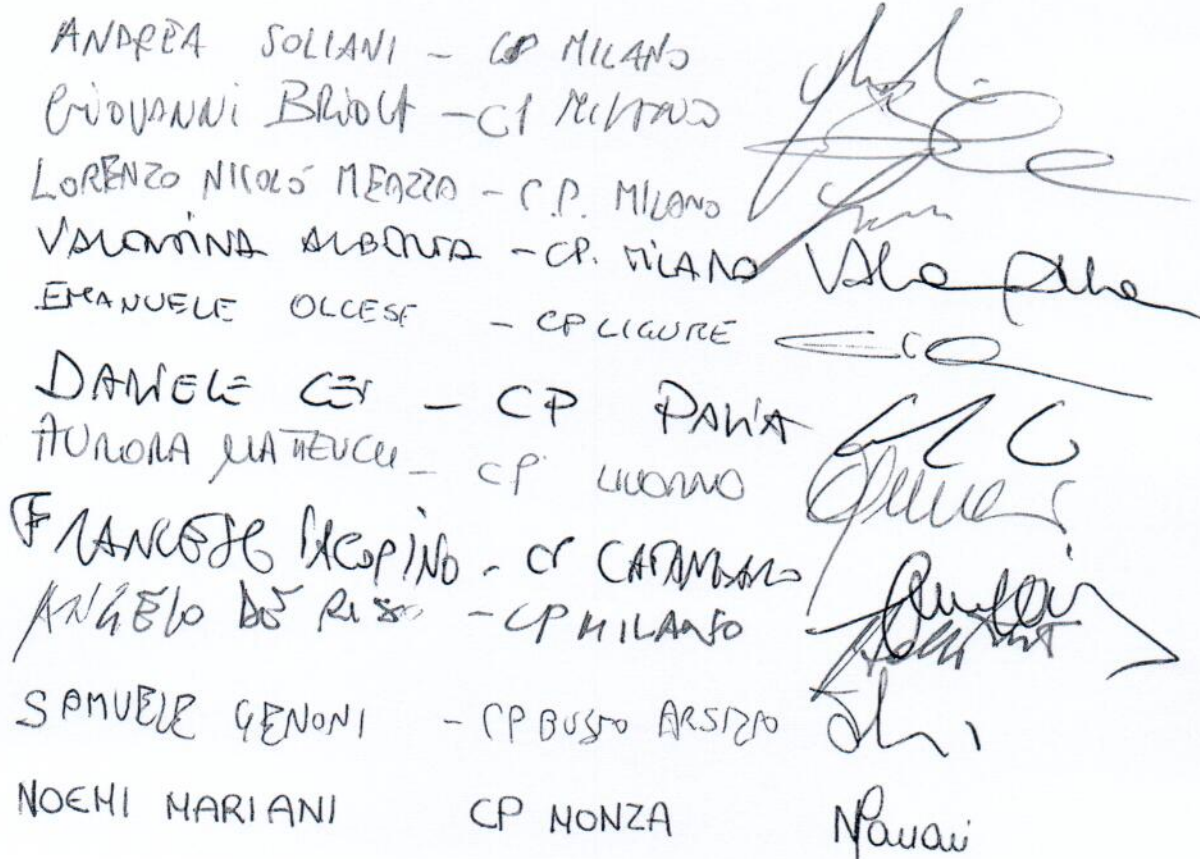 ANDREA SOLIANI - CP MILANO
GIOVANNI BRIOLA - CP MILANO
LORENZO NICOLÓ MEAZZA - C.P. MILANO
VALENTINA ALBERTA - CP. MILANO
EMANUELE OLCESE - CP LIGURE
DANIELE CEI - CP PAVIA
AURORA MATTEUCCI - CP LIVORNO
FRANCESCO IACOPINO - CP CATANZARO
ANGELO DE RISO - CP MILANO
SAMUELE GENONI - CP BUSTO ARSIZIO
NOEMI MARIANI CP MONZA NMariani